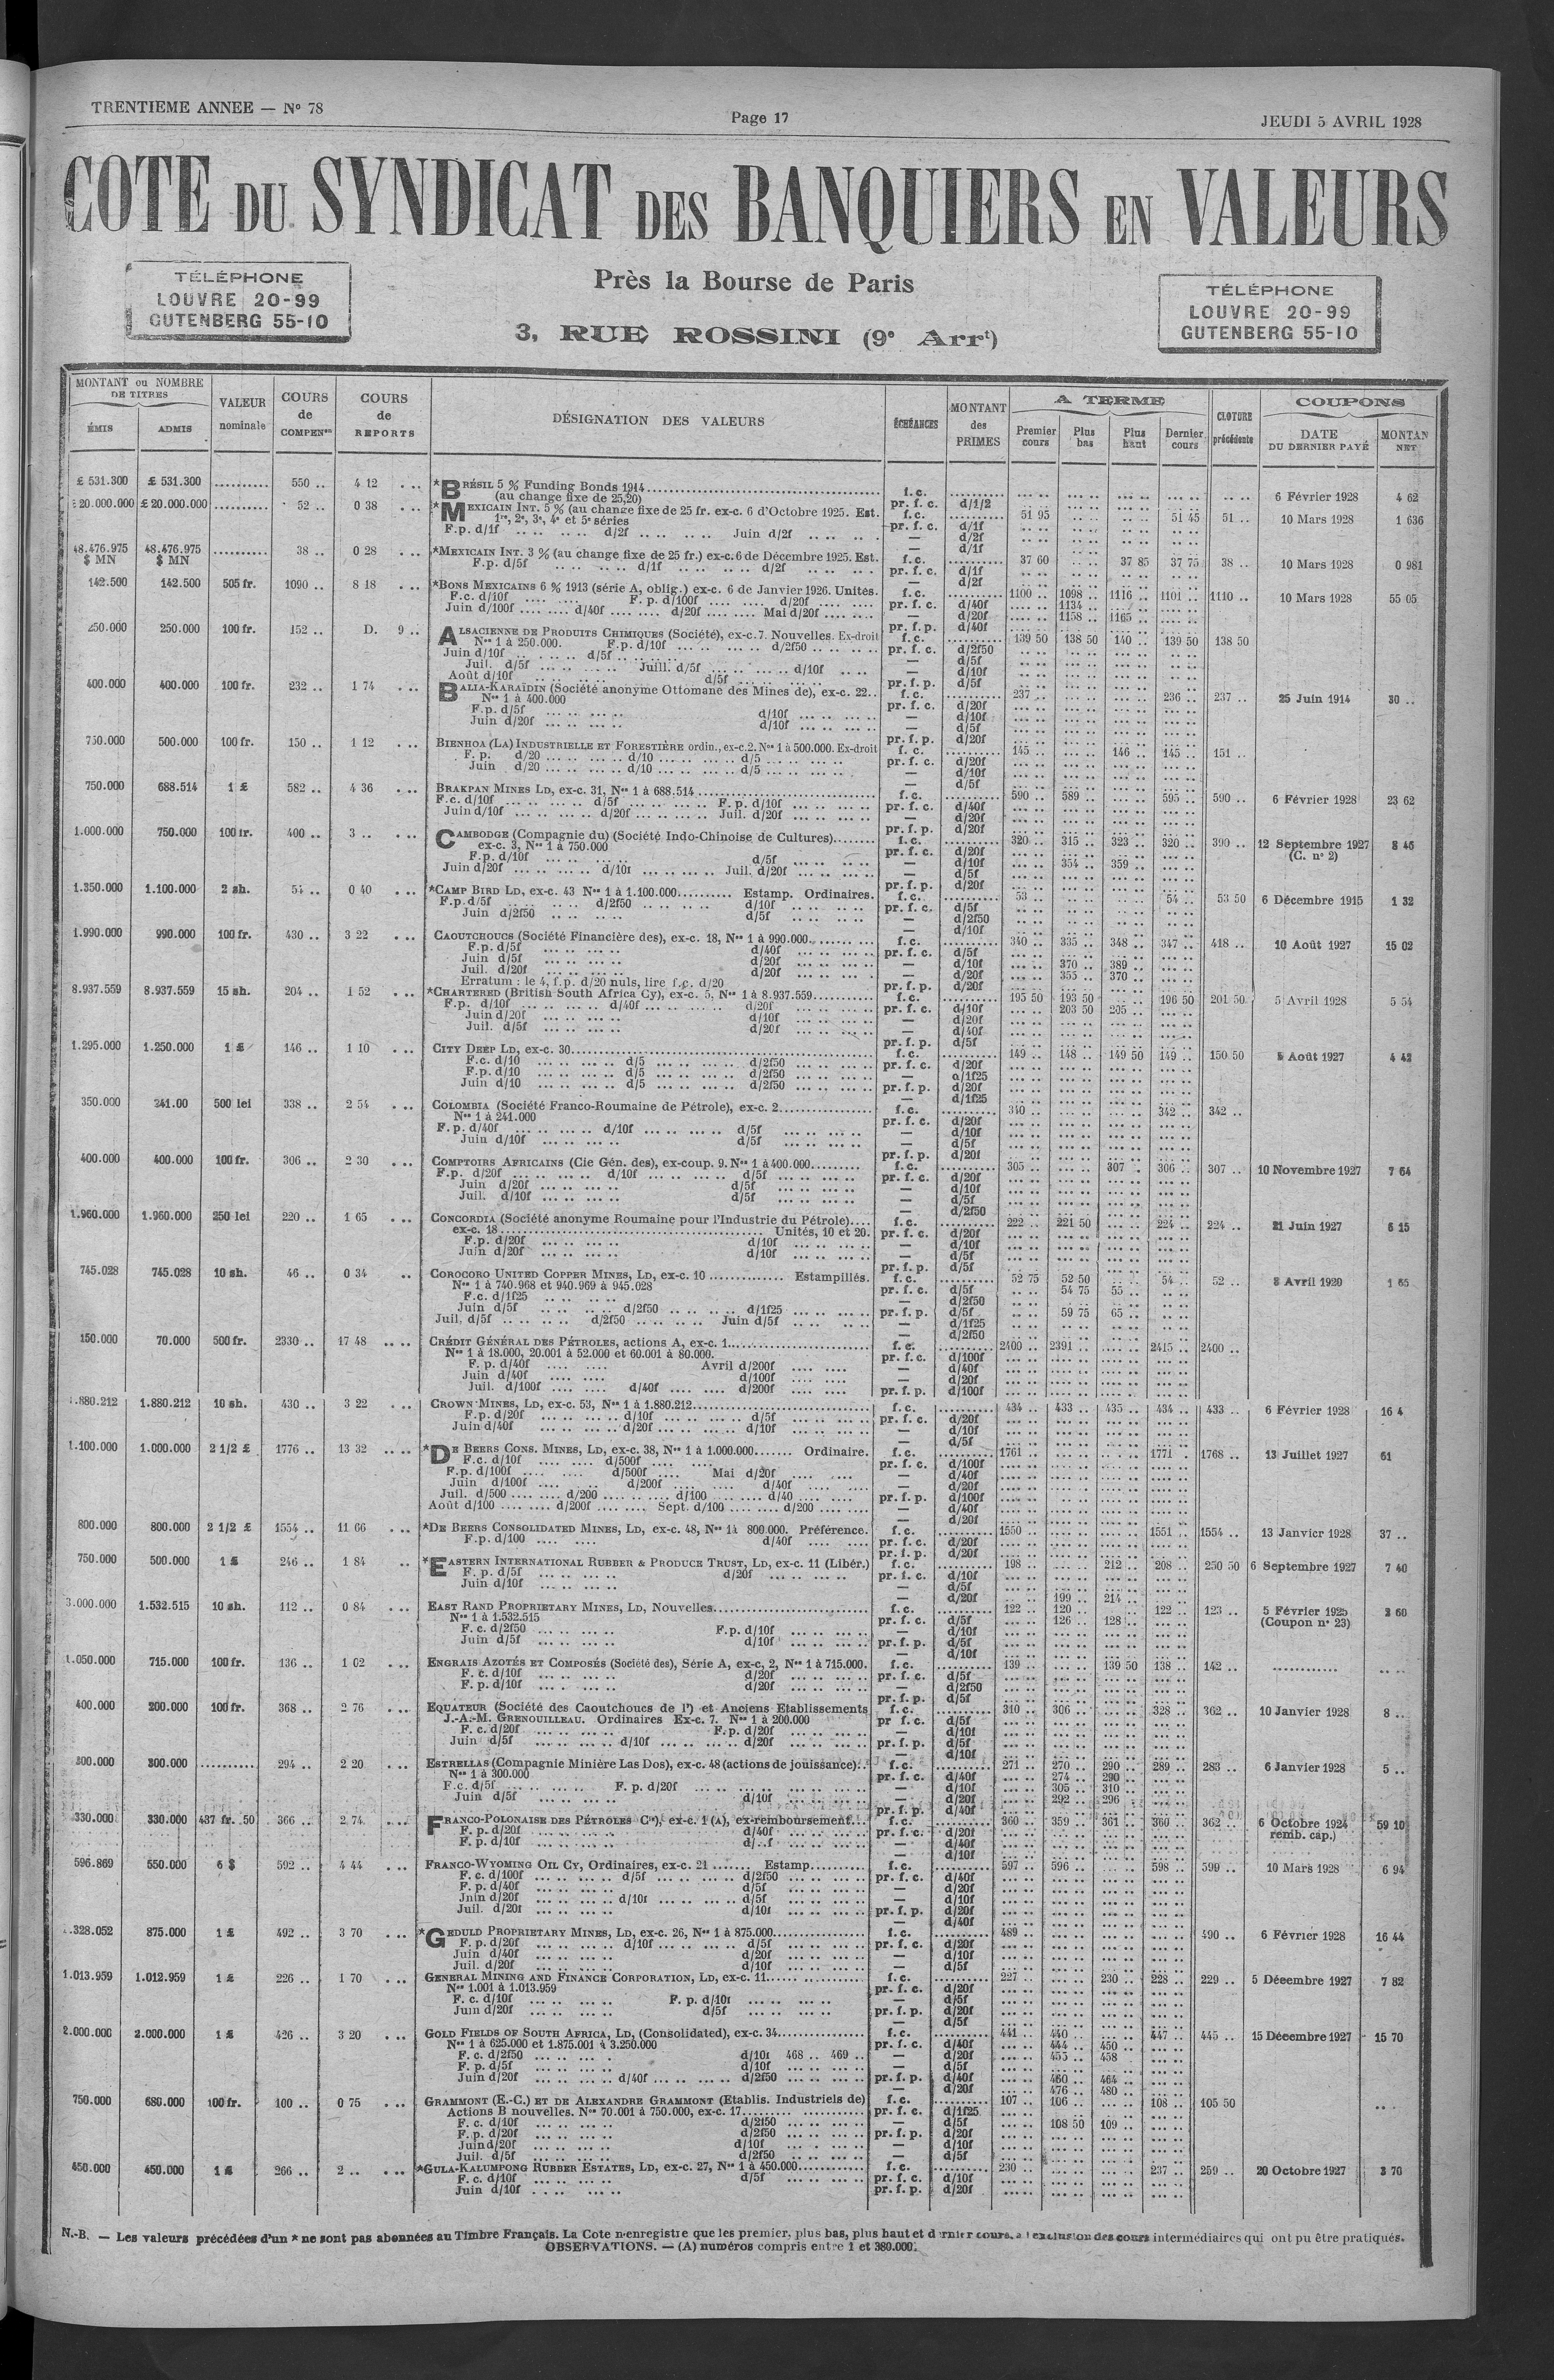 TRENTIEME ANNEE — Nº 78
Page 17
JEUDI 5 AVRIL 1928
COTE DU SYNDICAT DES BANQUIERS EN VALEURS
TÉLÉPHONE
LOUVRE 20-99
GUTENBERG 55-10
Près la Bourse de Paris
3, RUE ROSSINI (9e Arrt)
TÉLÉPHONE
LOUVRE 20-99
GUTENBERG 55-10
MONTANT ou NOMBRE DE TITRES
ÉMIS ADMIS
VALEUR nominale
COURS de COMPENon
COURS de REPORTS
DÉSIGNATION DES VALEURS
ÉCHÉANCES
MONTANT des PRIMES
A TERME
Premier cours Plus bas Plus haut Dernier cours
CLOTURE précédente
COUPONS
DATE DU DERNIER PAYÉ MONTAN NET
£ 531.300 £ 531.300 .......... 550 .. 4 12 *BRÉSIL 5 % Funding Bonds 1914 f. c. 6 Février 1928 4 62
(au change fixe de 25,20) pr. f. c. d/1/2
£ 20.000.000 £ 20.000.000 .......... 52 .. 0 38 *MEXICAIN INT. 5 % (au change fixe de 25 fr. ex-c. 6 d'Octobre 1925. Est. f. c. 51 95 51 45 51 .. 10 Mars 1928 1 636
1re, 2e, 3e, 4e et 5e séries pr. f. c. d/1f
F.p. d/1f d/2f Juin d/2f — d/2f
48.476.975 $ MN 48.476.975 $ MN .......... 38 .. 0 28 *MEXICAIN INT. 3 % (au change fixe de 25 fr.) ex-c. 6 de Décembre 1925. Est. f. c. 37 60 37 85 37 75 38 .. 10 Mars 1928 0 981
F.p. d/5f d/1f d/2f pr. f. c. d/1f
142.500 142.500 505 fr. 1090 .. 8 18 *BONS MEXICAINS 6 % 1913 (série A, oblig.) ex-c. 6 de Janvier 1926. Unités. f. c. 1100 .. 1098 .. 1116 .. 1101 .. 1110 .. 10 Mars 1928 55 05
F.c. d/10f F. p. d/100f d/20f pr. f. c. d/40f 1134 ..
Juin d/100f d/40f d/20f Mai d/20f d/20f 1158 .. 1165 ..
250.000 250.000 100 fr. 152 .. D. 9 .. ALSACIENNE DE PRODUITS CHIMIQUES (Société), ex-c. 7. Nouvelles. Ex-droit f. c. 139 50 138 50 140 .. 139 50 138 50
Nos 1 à 250.000. F.p. d/10f d/2f50 pr. f. c. d/2f50
Juin d/10f d/5f — d/5f
Juil. d/5f Juill. d/5f d/10f — d/10f
Août d/10f d/5f pr. f. p. d/5f
400.000 400.000 100 fr. 232 .. 1 74 BALIA-KARAÏDIN (Société anonyme Ottomane des Mines de), ex-c. 22.. f. c. 237 .. 236 .. 237 .. 25 Juin 1914 30 ..
Nos 1 à 400.000 pr. f. c. d/20f
F.p. d/5f d/10f — d/10f
Juin d/20f d/10f — d/5f
750.000 500.000 100 fr. 150 .. 1 12 BIENHOA (LA) INDUSTRIELLE ET FORESTIÈRE ordin., ex-c. 2. Nos 1 à 500.000. Ex-droit f. c. 145 .. 146 .. 145 .. 151 ..
F. p. d/20 d/10 d/5 pr. f. c. d/20f
Juin d/20 d/10 d/5 — d/10f
750.000 688.514 1 £ 582 .. 4 36 BRAKPAN MINES LD, ex-c. 31, Nos 1 à 688.514 f. c. 590 .. 589 .. 595 .. 590 .. 6 Février 1928 23 62
F.c. d/10f d/5f F. p. d/10f pr. f. c. d/40f
Juin d/10f d/20f Juil. d/20f — d/20f
1.000.000 750.000 100 fr. 400 .. 3 .. CAMBODGE (Compagnie du) (Société Indo-Chinoise de Cultures) f. c. 320 .. 315 .. 323 .. 320 .. 390 .. 12 Septembre 1927 (C. nº 2) 8 46
ex-c. 3, Nos 1 à 750.000 pr. f. c. d/20f
F.p. d/10f d/5f — d/10f 354 .. 359 ..
Juin d/20f d/10f Juil. d/20f — d/5f
1.350.000 1.100.000 2 sh. 54 .. 0 40 *CAMP BIRD LD, ex-c. 43 Nos 1 à 1.100.000 Estamp. Ordinaires. f. c. 53 .. 54 .. 53 50 6 Décembre 1915 1 32
F.p. d/5f d/2f50 d/10f pr. f. c. d/5f
Juin d/2f50 d/5f — d/2f50
1.990.000 990.000 100 fr. 430 .. 3 22 CAOUTCHOUCS (Société Financière des), ex-c. 18, Nos 1 à 990.000 f. c. 340 .. 335 .. 348 .. 347 .. 418 .. 10 Août 1927 15 02
F.p. d/5f d/40f pr. f. c. d/5f
Juin d/5f d/20f — d/10f 370 .. 389 ..
Juil. d/20f d/20f — d/20f 355 .. 370 ..
Erratum : le 4, f.p. d/20 nuls, lire f.c. d/20 pr. f. p. d/20f
8.937.559 8.937.559 15 sh. 204 .. 1 52 *CHARTERED (British South Africa Cy), ex-c. 5, Nos 1 à 8.937.559 f. c. 195 50 193 50 196 50 201 50 5 Avril 1928 5 54
F.p. d/10f d/40f d/20f pr. f. c. d/10f 203 50 205 ..
Juin d/20f d/10f — d/20f
Juil. d/5f d/20f — d/40f
1.295.000 1.250.000 1 £ 146 .. 1 10 CITY DEEP LD, ex-c. 30 f. c. 149 .. 148 .. 149 50 149 .. 150 50 Août 1927 4 42
F.c. d/10 d/5 d/2f50 pr. f. c. d/20f
F.p. d/10 d/5 d/2f50 — d/1f25
Juin d/10 d/5 d/2f50 pr. f. p. d/20f
350.000 241.00 500 lei 338 .. 2 54 COLOMBIA (Société Franco-Roumaine de Pétrole), ex-c. 2 f. c. 340 .. 342 .. 342 ..
Nos 1 à 241.000 pr. f. c. d/20f
F. p. d/40f d/10f d/5f — d/10f
Juin d/10f d/5f — d/5f
400.000 400.000 100 fr. 306 .. 2 30 COMPTOIRS AFRICAINS (Cie Gén. des), ex-coup. 9. Nos 1 à 400.000 f. c. 305 .. 307 .. 306 .. 307 .. 10 Novembre 1927 7 64
F.p. d/20f d/10f d/5f pr. f. c. d/20f
Juin d/20f d/5f — d/10f
Juil. d/10f d/5f — d/5f
1.960.000 1.960.000 250 lei 220 .. 1 65 CONCORDIA (Société anonyme Roumaine pour l'Industrie du Pétrole) f. c. 222 .. 221 50 224 .. 224 .. 21 Juin 1927 6 15
ex-c. 18 Unités, 10 et 20. pr. f. c. d/20f
F.p. d/20f d/10f — d/10f
Juin d/20f d/10f — d/5f
745.028 745.028 10 sh. 46 .. 0 34 COROCORO UNITED COPPER MINES, LD, ex-c. 10 Estampillés. f. c. 52 75 52 50 54 .. 52 .. 8 Avril 1920 1 65
Nos 1 à 740.968 et 940.969 à 945.028 pr. f. c. d/5f 54 75 55 ..
F.c. d/1f25 — d/2f50
Juin d/5f d/2f50 d/1f25 pr. f. p. d/5f 59 75 65 ..
Juil. d/5f d/2f50 Juin d/5f — d/1f25
150.000 70.000 500 fr. 2330 .. 17 48 CRÉDIT GÉNÉRAL DES PÉTROLES, actions A, ex-c. 1 f. c. 2400 .. 2391 .. 2415 .. 2400 ..
Nos 1 à 18.000, 20.001 à 52.000 et 60.001 à 80.000. pr. f. c. d/100f
F. p. d/40f Avril d/200f — d/40f
Juin d/40f d/100f — d/20f
Juil. d/100f d/40f d/200f pr. f. p. d/100f
1.880.212 1.880.212 10 sh. 430 .. 3 22 CROWN MINES, LD, ex-c. 53, Nos 1 à 1.880.212 f. c. 434 .. 433 .. 435 .. 434 .. 433 .. 6 Février 1928 16 4
F.p. d/20f d/10f d/5f pr. f. c. d/20f
Juin d/40f d/20f d/10f — d/10f
1.100.000 1.000.000 2 1/2 £ 1776 .. 13 32 *DE BEERS CONS. MINES, LD, ex-c. 38, Nos 1 à 1.000.000 Ordinaire. f. c. 1761 1771 . 1768 .. 13 Juillet 1927 61
F.c. d/10f d/500f pr. f. c. d/100f
F.p. d/100f d/500f Mai d/20f — d/40f
Juin d/100f d/200f d/40f — d/20f
Juil. d/500 d/200 d/100 d/40 pr. f. p. d/100f
Août d/100 d/200f Sept. d/100 d/200 — d/40f
800.000 800.000 2 1/2 £ 1554 .. 11 66 *DE BEERS CONSOLIDATED MINES, LD, ex-c. 48, Nos 1à 800.000. Préférence. f. c. 1550 1551 .. 1554 .. 13 Janvier 1928 37 ..
F.p. d/100 d/40f pr. f. c. d/20f
750.000 500.000 1 £ 246 .. 1 84 *EASTERN INTERNATIONAL RUBBER & PRODUCE TRUST, LD, ex-c. 11 (Libér.) f. c. 198 .. 212 .. 208 .. 250 50 6 Septembre 1927 7 40
F. p. d/5f d/20f pr. f. c. d/10f
Juin d/10f — d/5f
— d/20f 199 .. 214 ..
3.000.000 1.532.515 10 sh. 112 .. 0 84 EAST RAND PROPRIETARY MINES, LD, Nouvelles f. c. 122 .. 120 .. 122 .. 123 .. 5 Février 1925 (Coupon nº 23) 60
Nos 1 à 1.532.515 pr. f. c. d/5f 126 .. 128 ..
F. c. d/2f50 F.p. d/10f — d/10f
Juin d/5f d/10f pr. f. p. d/5f
1.050.000 715.000 100 fr. 136 .. 1 02 ENGRAIS AZOTÉS ET COMPOSÉS (Société des), Série A, ex-c, 2, Nos 1 à 715.000. f. c. 139 .. 139 50 138 .. 142 .. ............
F. c. d/10f d/20f pr. f. c. d/5f
F. p. d/10f d/20f — d/2f50
400.000 200.000 100 fr. 368 .. 2 76 EQUATEUR (Société des Caoutchoucs de l') et Anciens Etablissements f. c. 310 .. 306 .. 328 .. 362 .. 10 Janvier 1928 8 ..
J.-A.-M. GRENOUILLEAU. Ordinaires Ex-c. 7. Nos 1 à 200.000 pr f. c. d/5f
F. c. d/20f F.p. d/20f — d/10f
Juin d/5f d/10f d/20f pr. f. p. d/5f
300.000 300.000 .......... 294 .. 2 20 ESTRELLAS (Compagnie Minière Las Dos), ex-c. 48 (actions de jouissance) f. c. 271 .. 270 .. 290 .. 289 .. 283 .. 6 Janvier 1928 5 ..
Nos 1 à 300.000 pr. f. c. d/40f 274 .. 290 ..
F.c. d/5f F. p. d/20f — d/10f 305 .. 310 ..
Juin d/5f d/10f — d/20f 292 .. 296
330.000 330.000 437 fr. 50 366 .. 2 74 FRANCO-POLONAISE DES PÉTROLES Cie), ex-c. 1 (A), ex-remboursement f. c. 360 .. 359 .. 361 .. 360 .. 362 .. 6 Octobre 1924 remb. cap.) 59 10
F. p. d/20f d/40f pr. f. c. d/20f
F. p. d/10f d/..f — d/40f
596.869 550.000 6 $ 592 .. 4 44 FRANCO-WYOMING OIL CY, Ordinaires, ex-c. 21 Estamp f. c. 597 .. 596 .. 598 .. 599 .. 10 Mars 1928 6 94
F. c. d/100f d/5f d/2f50 pr. f. c. d/40f
F. p. d/40f d/5f — d/20f
Jnin d/20f d/10f d/5f — d/10f
Juil. d/20f d/10f pr. f. p. d/20f
.328.052 875.000 1 £ 492 .. 3 70 *GEDULD PROPRIETARY MINES, LD, ex-c. 26, Nos 1 à 875.000 f. c. 489 .. 490 .. 6 Février 1928 16 44
F. p. d/20f d/10f d/5f pr. f. c. d/20f
Juin d/40f d/20f — d/10f
Juil. d/20f d/10f — d/5f
1.013.959 1.012.959 1 £ 226 .. 1 70 GENERAL MINING AND FINANCE CORPORATION, LD, ex-c. 11 f. c. 227 .. 230 .. 228 .. 229 .. 5 Décembre 1927 7 82
Nos 1.001 à 1.013.959 pr. f. c. d/20f
F. c. d/10f F. p. d/10f — d/5f
Juin d/20f d/5f pr. f. p. d/20f
2.000.000 2.000.000 1 £ 426 .. 3 20 GOLD FIELDS OF SOUTH AFRICA, LD, (Consolidated), ex-c. 34 f. c. 441 .. 440 .. 447 .. 445 .. 15 Décembre 1927 15 70
Nos 1 à 625.000 et 1.875.001 à 3.250.000 pr. f. c. d/40f 444 .. 450 ..
F. c. d/2f50 d/10f 468 .. 469 .. — d/20f 455 .. 458
F. p. d/5f d/10f — d/5f
Juin d/20f d/40f d/2f50 pr. f. p. d/40f 460 .. 464 ..
— d/20f 476 .. 480 ..
750.000 680.000 100 fr. 100 .. 0 75 GRAMMONT (E.-C.) ET DE ALEXANDRE GRAMMONT (Etablis. Industriels de) f. c. 107 .. 106 .. 108 .. 105 50
Actions B nouvelles. Nos 70.001 à 750.000, ex-c. 17 pr. f. c. d/1f25
F. c. d/10f d/2f50 — d/5f 108 50 109 ..
F. p. d/20f d/2f50 pr. f. p. d/20f
Juin d/20f d/10f — d/10f
Juil. d/5f d/2f50 — d/5f
450.000 450.000 1 £ 266 .. 2 .. *GULA-KALUMPONG RUBBER ESTATES, LD, ex-c. 27, Nos 1 à 450.000 f. c. 230 .. 237 .. 259 .. 20 Octobre 1927 3 70
F. c. d/10f d/5f pr. f. c. d/10f
Juin d/10f pr. f. p. d/20f
N.-B. — Les valeurs précédées d'un * ne sont pas abonnées au Timbre Français. La Cote n'enregistre que les premier, plus bas, plus haut et dernier cours, à l'exclusion des cours intermédiaires qui ont pu être pratiqués.
OBSERVATIONS. — (A) numéros compris entre 1 et 380.000.